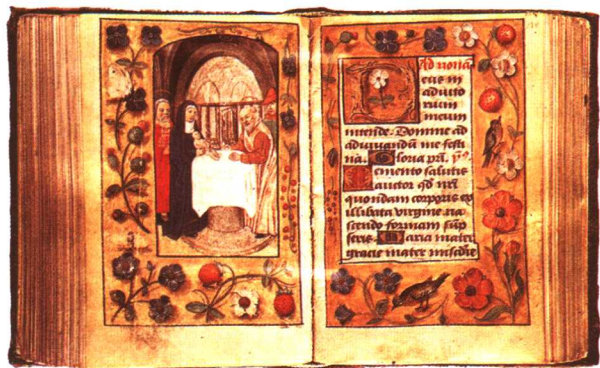 Ad nona
eus in
adiuto
rium
meum
intende. Domine ad
adiuvandum me festi
na. Gloria pri.
emento salutis
auctor qd nri
quondam corporis ex
illibata virgine na
scendo formam sũp
seris. Maria mater
gracie mater misc̄die